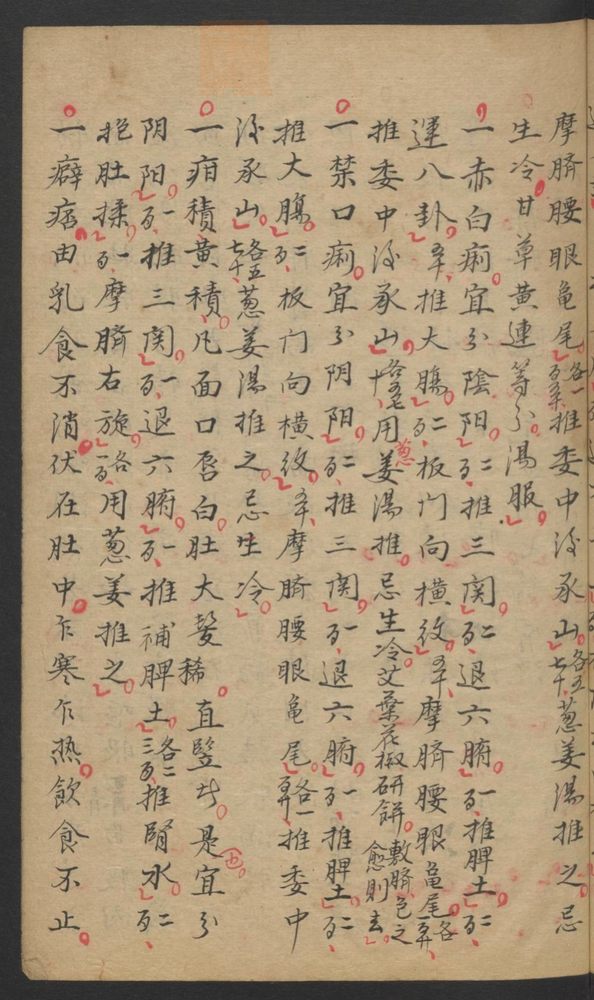 摩臍腰眼龜尾各一百推委中後承山各五七十葱姜湯推之忌
生冷甘草黃連等分湯服
一赤白痢宜分陰陽二百推三関二百退六腑一百推脾土二百
運八卦五十推大腸二百板门向横纹五十摩臍腰眼龜尾各一百
推委中後承山用葱姜湯推忌生冷艾葉花椒研餅敷臍之愈則去
一禁口痢宜分阴阳二百推三関一百退六腑一百推脾土二百
推大腸二百板门向横纹五十摩臍腰眼龜尾各一百推委中
後承山各五七十葱姜湯推之忌生冷
一疳積黃積凡面口唇白肚大髮稀直豎者是宜分
阴阳一百推三関一百退六腑一百推補脾土各二三百推腎水二百
抱肚揉一百摩臍右旋各一百用葱姜推之
一癖由乳食不消伏在肚中乍寒乍热飲食不止